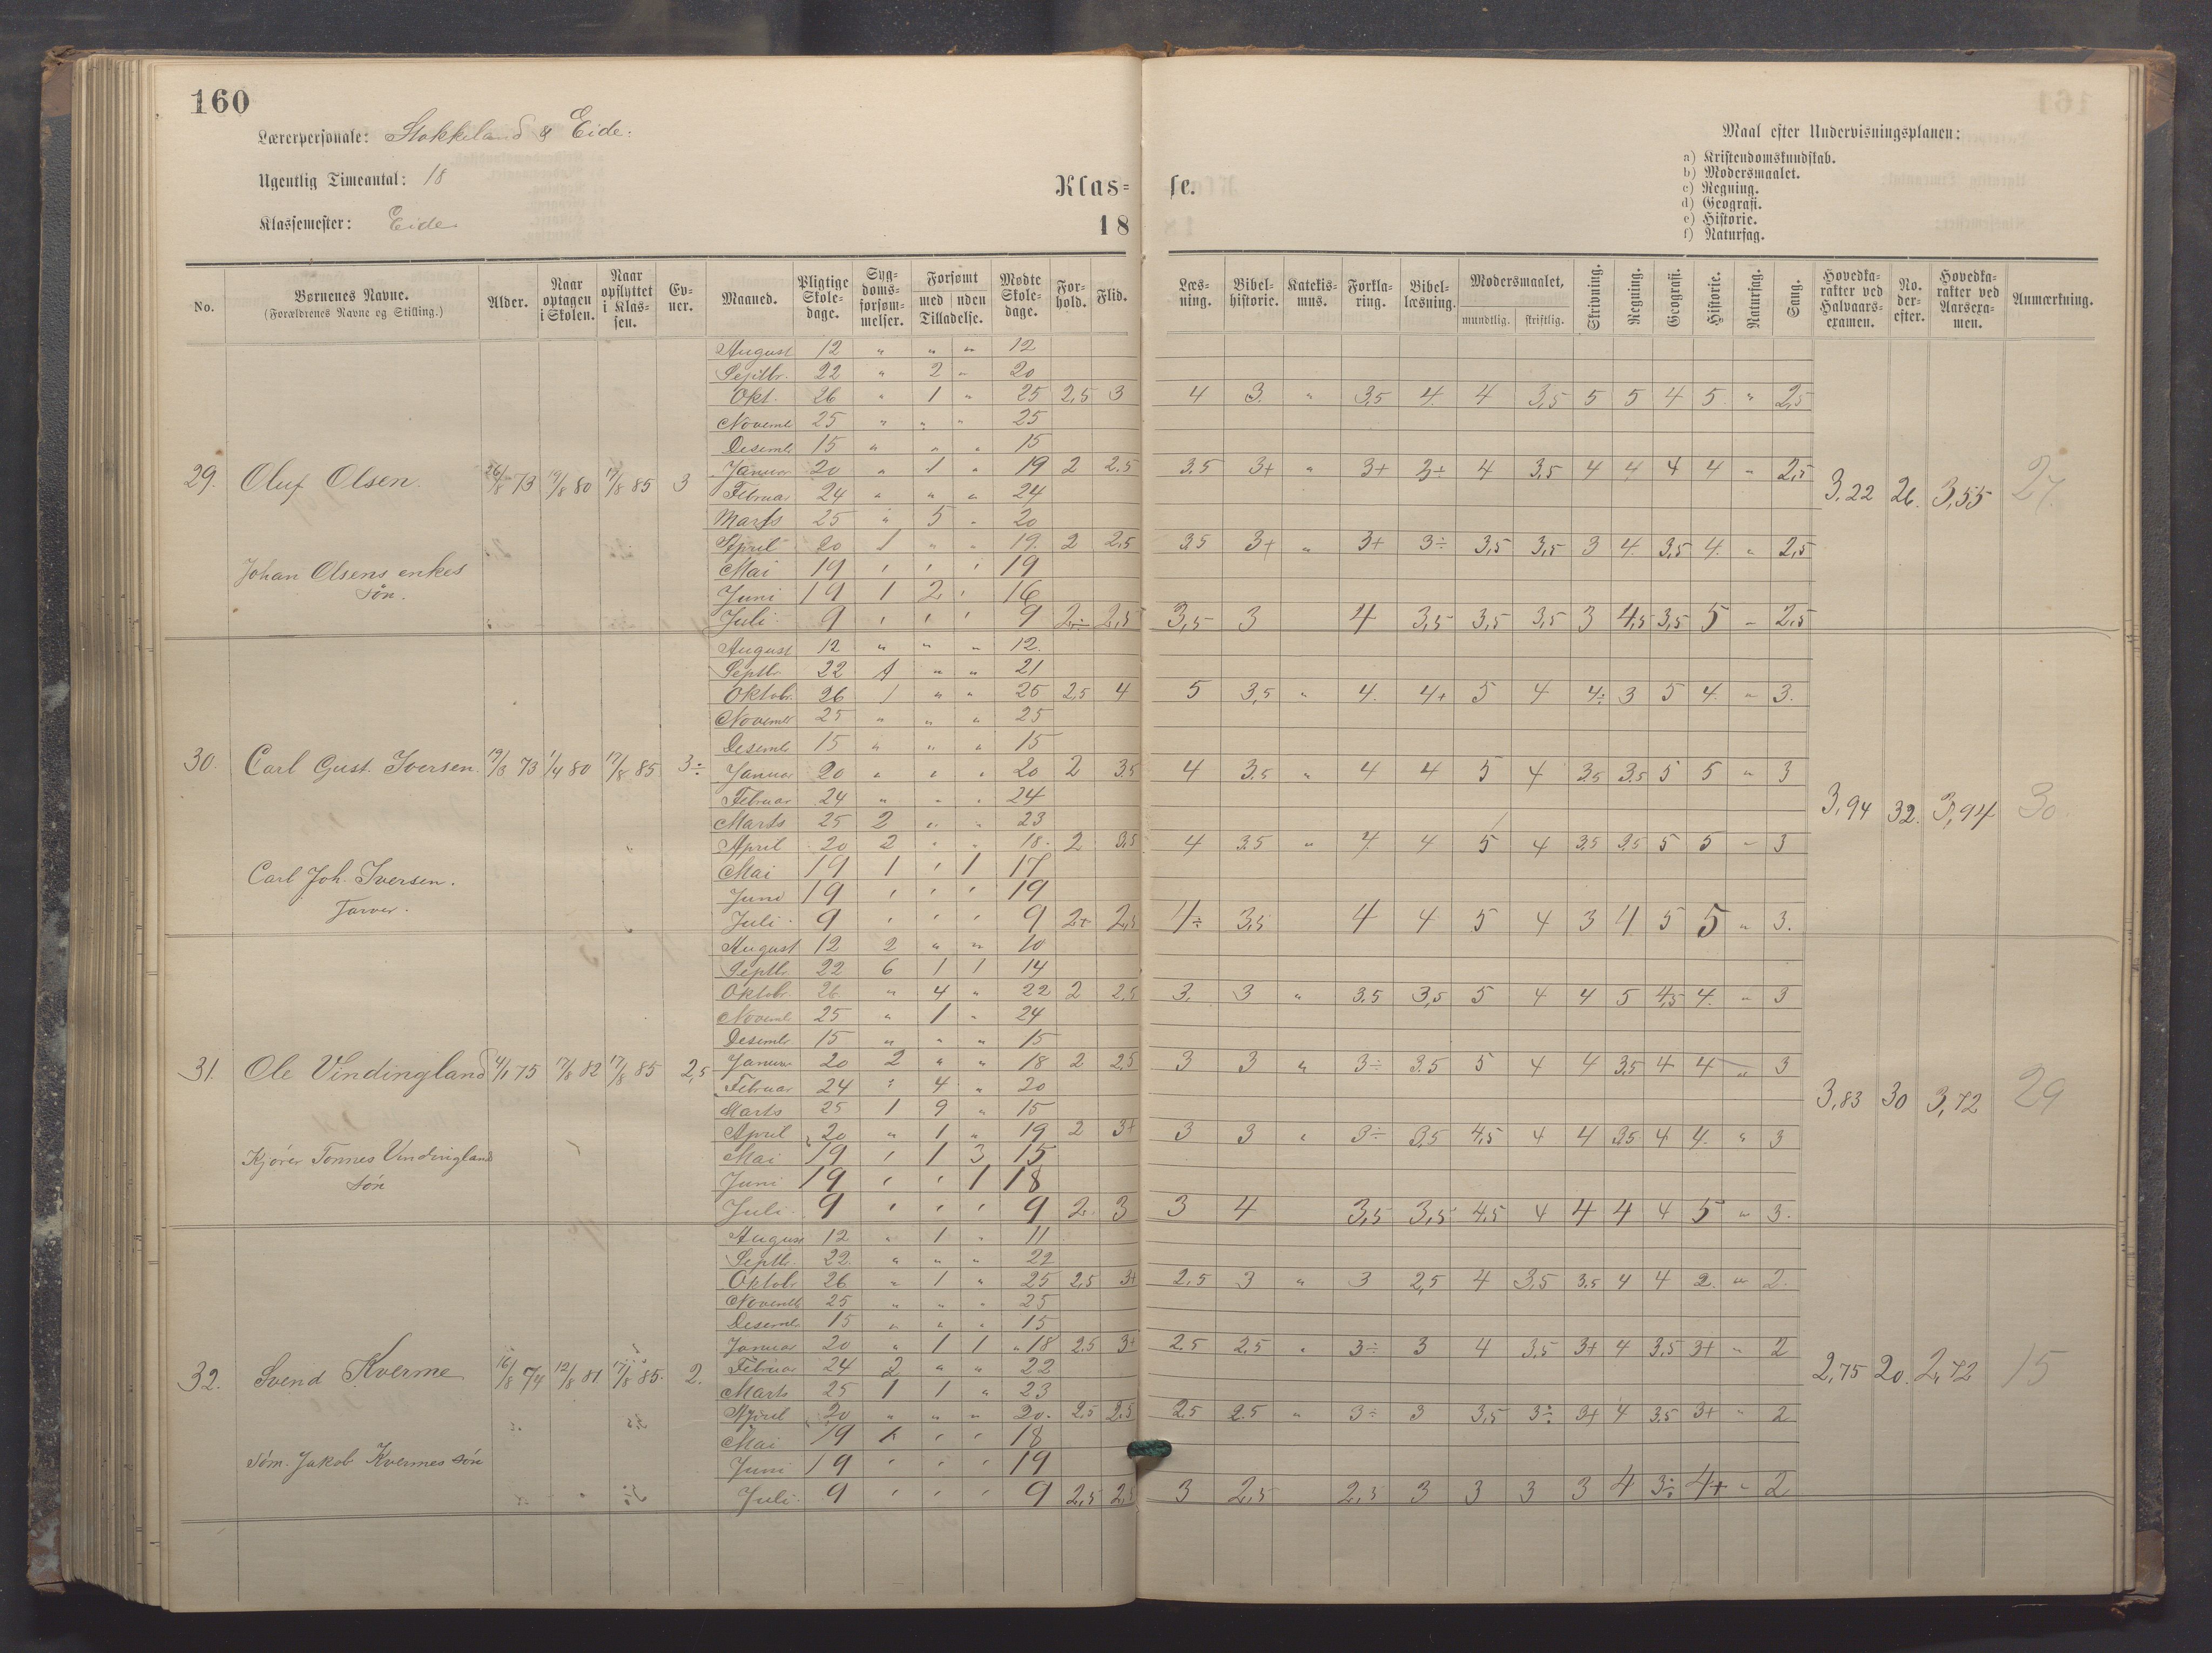 160
Lærerpersonale: Stokkeland & Eide.
Ugentlig Timeantal: 18
Klassemester: Eide
Klas= se.
18
Maal efter Undervisningsplanen:
a) Kristendomskundskab.
b) Modersmaalet.
c) Regning.
d) Geografi.
e) Historie.
f) Naturfag.
No. | Børnenes Navne. (Forældrenes Navne og Stilling.) | Alder. | Naar optagen i Skolen. | Naar opflyttet i Klassen. | Evner. | Maaned. | Pligtige Skoledage. | Sygdomsforsømmelser. | Forsømt med Tilladelse. | uden Tilladelse. | Mødte Skoledage. | Forhold. | Flid. | Læsning. | Bibelhistorie. | Katekismus. | Forklaring. | Bibellæsning. | Modersmaalet, mundtlig. | skriftlig. | Skrivning. | Regning. | Geografi. | Historie. | Naturfag. | Sang. | Hovedkarakter ved Halvaarsexamen. | No. derefter. | Hovedkarakter ved Aarsexamen. | Anmærkning.
August 12 " " " 12
Septbr. 22 " 2 " 20
Okt. 26 " 1 " 25 2,5 3 4 3 " 3,5 4 4 3,5 5 5 4 5 " 2,5
Novemb 25 " " " 25
Desemb 15 " " " 15
29. Oluf Olsen. 26/8 73 19/8 80 17/8 85 3 Januar 20 " 1 " 19 2 2.5 3.5 3+ " 3+ 3+ 4 3,5 4 4 4 4 " 2,5
Februar 24 " " " 24 3,22 26. 3,55 27.
Marts 25 " 5 " 20
April 20 1 " " 19. 2 2,5 3.5 3+ " 3+ 3÷ 3,5 3,5 3 4 3,5 4. " 2,5
Johan Olsens enkes Mai 19 ' ' ' 19
søn. Juni 19 1 2 ' 16
Juli 9 ' ' ' 9 2÷ 2,5 3,5 3 4 3,5 3,5 3,5 3 4,5 3,5 5 " 2,5
August 12 " " " 12.
Septbr 22 1 " " 21
Oktobr. 26 1 " " 25 2,5 4 5 3,5 " 4. 4+ 5 4 4÷ 3 5 4. " 3.
Novemb 25 " " " 25
Desemb 15 " " " 15
30. Carl Gust. Iversen. 19/3 73 1/4 80 17/8 85 3÷ Januar 20 " " " 20 2 3.5 4 3.5 " 4 4 5 4 3.5 3.5 5 5 " 3
Februar 24 " " " 24
Marts 25 2 " " 23 3,94 32. 3,94 30.
April 20 2 " " 18. 2 3,5 4 3.5 " 4 4 5 4 3.5 3.5 5 5 " 3
Carl Joh. Iversen. Mai 19 1 ' 1 17
Farver. Juni 19 ' ' ' 19
Juli 9 ' ' ' 9 2+ 2,5 4÷ 3,5 4 4 5 4 3 4 5 5 " 3.
August 12 2 " " 10
Septbr. 22 6 1 1 14
Oktobr. 26 " 4 " 22 2 2,5 3. 3 " 3.5 3,5 5 4 4 5 4,5 4. " 3
Novemb 25 " 1 " 24
Desemb. 15 " " " 15
31. Ole Vindingland 4/1 75 17/8 82 17/8 85 2,5 Januar 20 2 " " 18 2 2.5 3 3 " 3÷ 3.5 5 4 4 3.5 4 4 " 3
Februar 24 " 4 " 20
Marts 25 1 9 " 15 3,83 30 3,72 29
April 20 " 1 " 19 2 3+ 3 3 " 3÷ 3,5 4,5 4 4 3.5 4 4. " 3
Kjører Tønnes Vindingland Mai 19 ' 1 3 15
søn Juni 19 ' ' 1 18
Juli 9 ' ' ' 9 2. 3 3 4 3,5 3,5 4.5 4 4 4 4 5 " 3.
August 12 " 1 " 11
Septbr. 22 " " " 22
Oktobr 26 " 1 " 25 2,5 3+ 2.5 3 " 3 2,5 4 3.5 3.5 4 4 2. " 2.
Novemb 25 " " " 25
Desemb. 15 " " " 15
Januar 20 " 1 1 18 2.5 3+ 2.5 2.5 " 3÷ 3 4 3.5 3+ 4 3.5 3+ " 2
32. Svend Kverme 16/8 74 12/8 81 17/8 85. 2. Februar 24 2 " " 22 2,75 20. 2,72 15
Marts 25 1 1 " 23
April 20 " " " 20. 2,5 2,5 2.5 2.5 " 3÷ 3 3,5 3÷ 3+ 4 3.5 3+ " 2
Mai 19 1 ' ' 18
Søm. Jakob Kvermes søn Juni 19 ' ' ' 19
Juli 9 ' ' ' 9 2,5 2,5 3 2,5 2,5 3 3 3 3 4 3÷ 4+ " 2